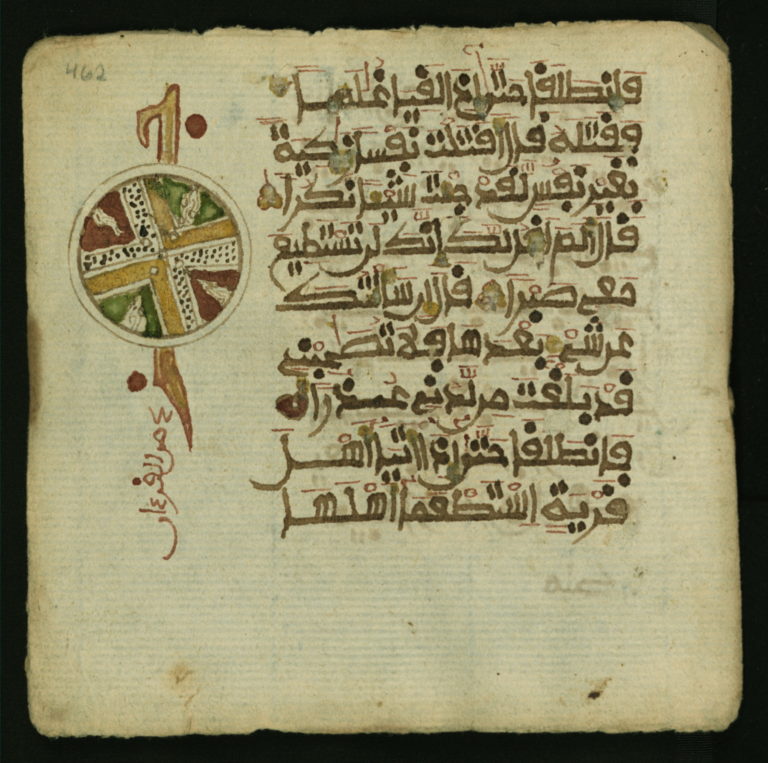 462
فانطلقا حتى اذا لقيا غلما
فقتله قال اقتلت نفسا زكية
بغير نفس لقد جئت شيئا نكرا
قال الم اقل لك انك لن تستطيع
معي صبرا قال ان سالتك
عن شيء بعدها فلا تصحبني
قد بلغت من لدني عذرا
فانطلقا حتى اذا اتيا اهل
قرية استطعما اهلها
من القرءان